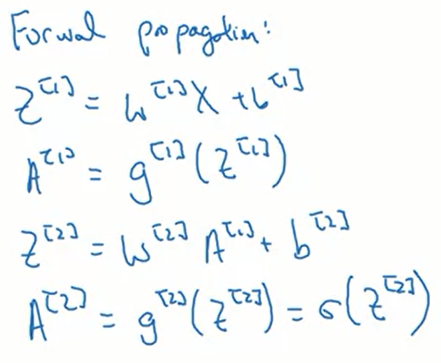 Forwal propagation:
Z^[1] = W^[1] X + b^[1]
A^[1] = g^[1] (Z^[1])
Z^[2] = W^[2] A^[1] + b^[2]
A^[2] = g^[2] (Z^[2]) = σ(Z^[2])